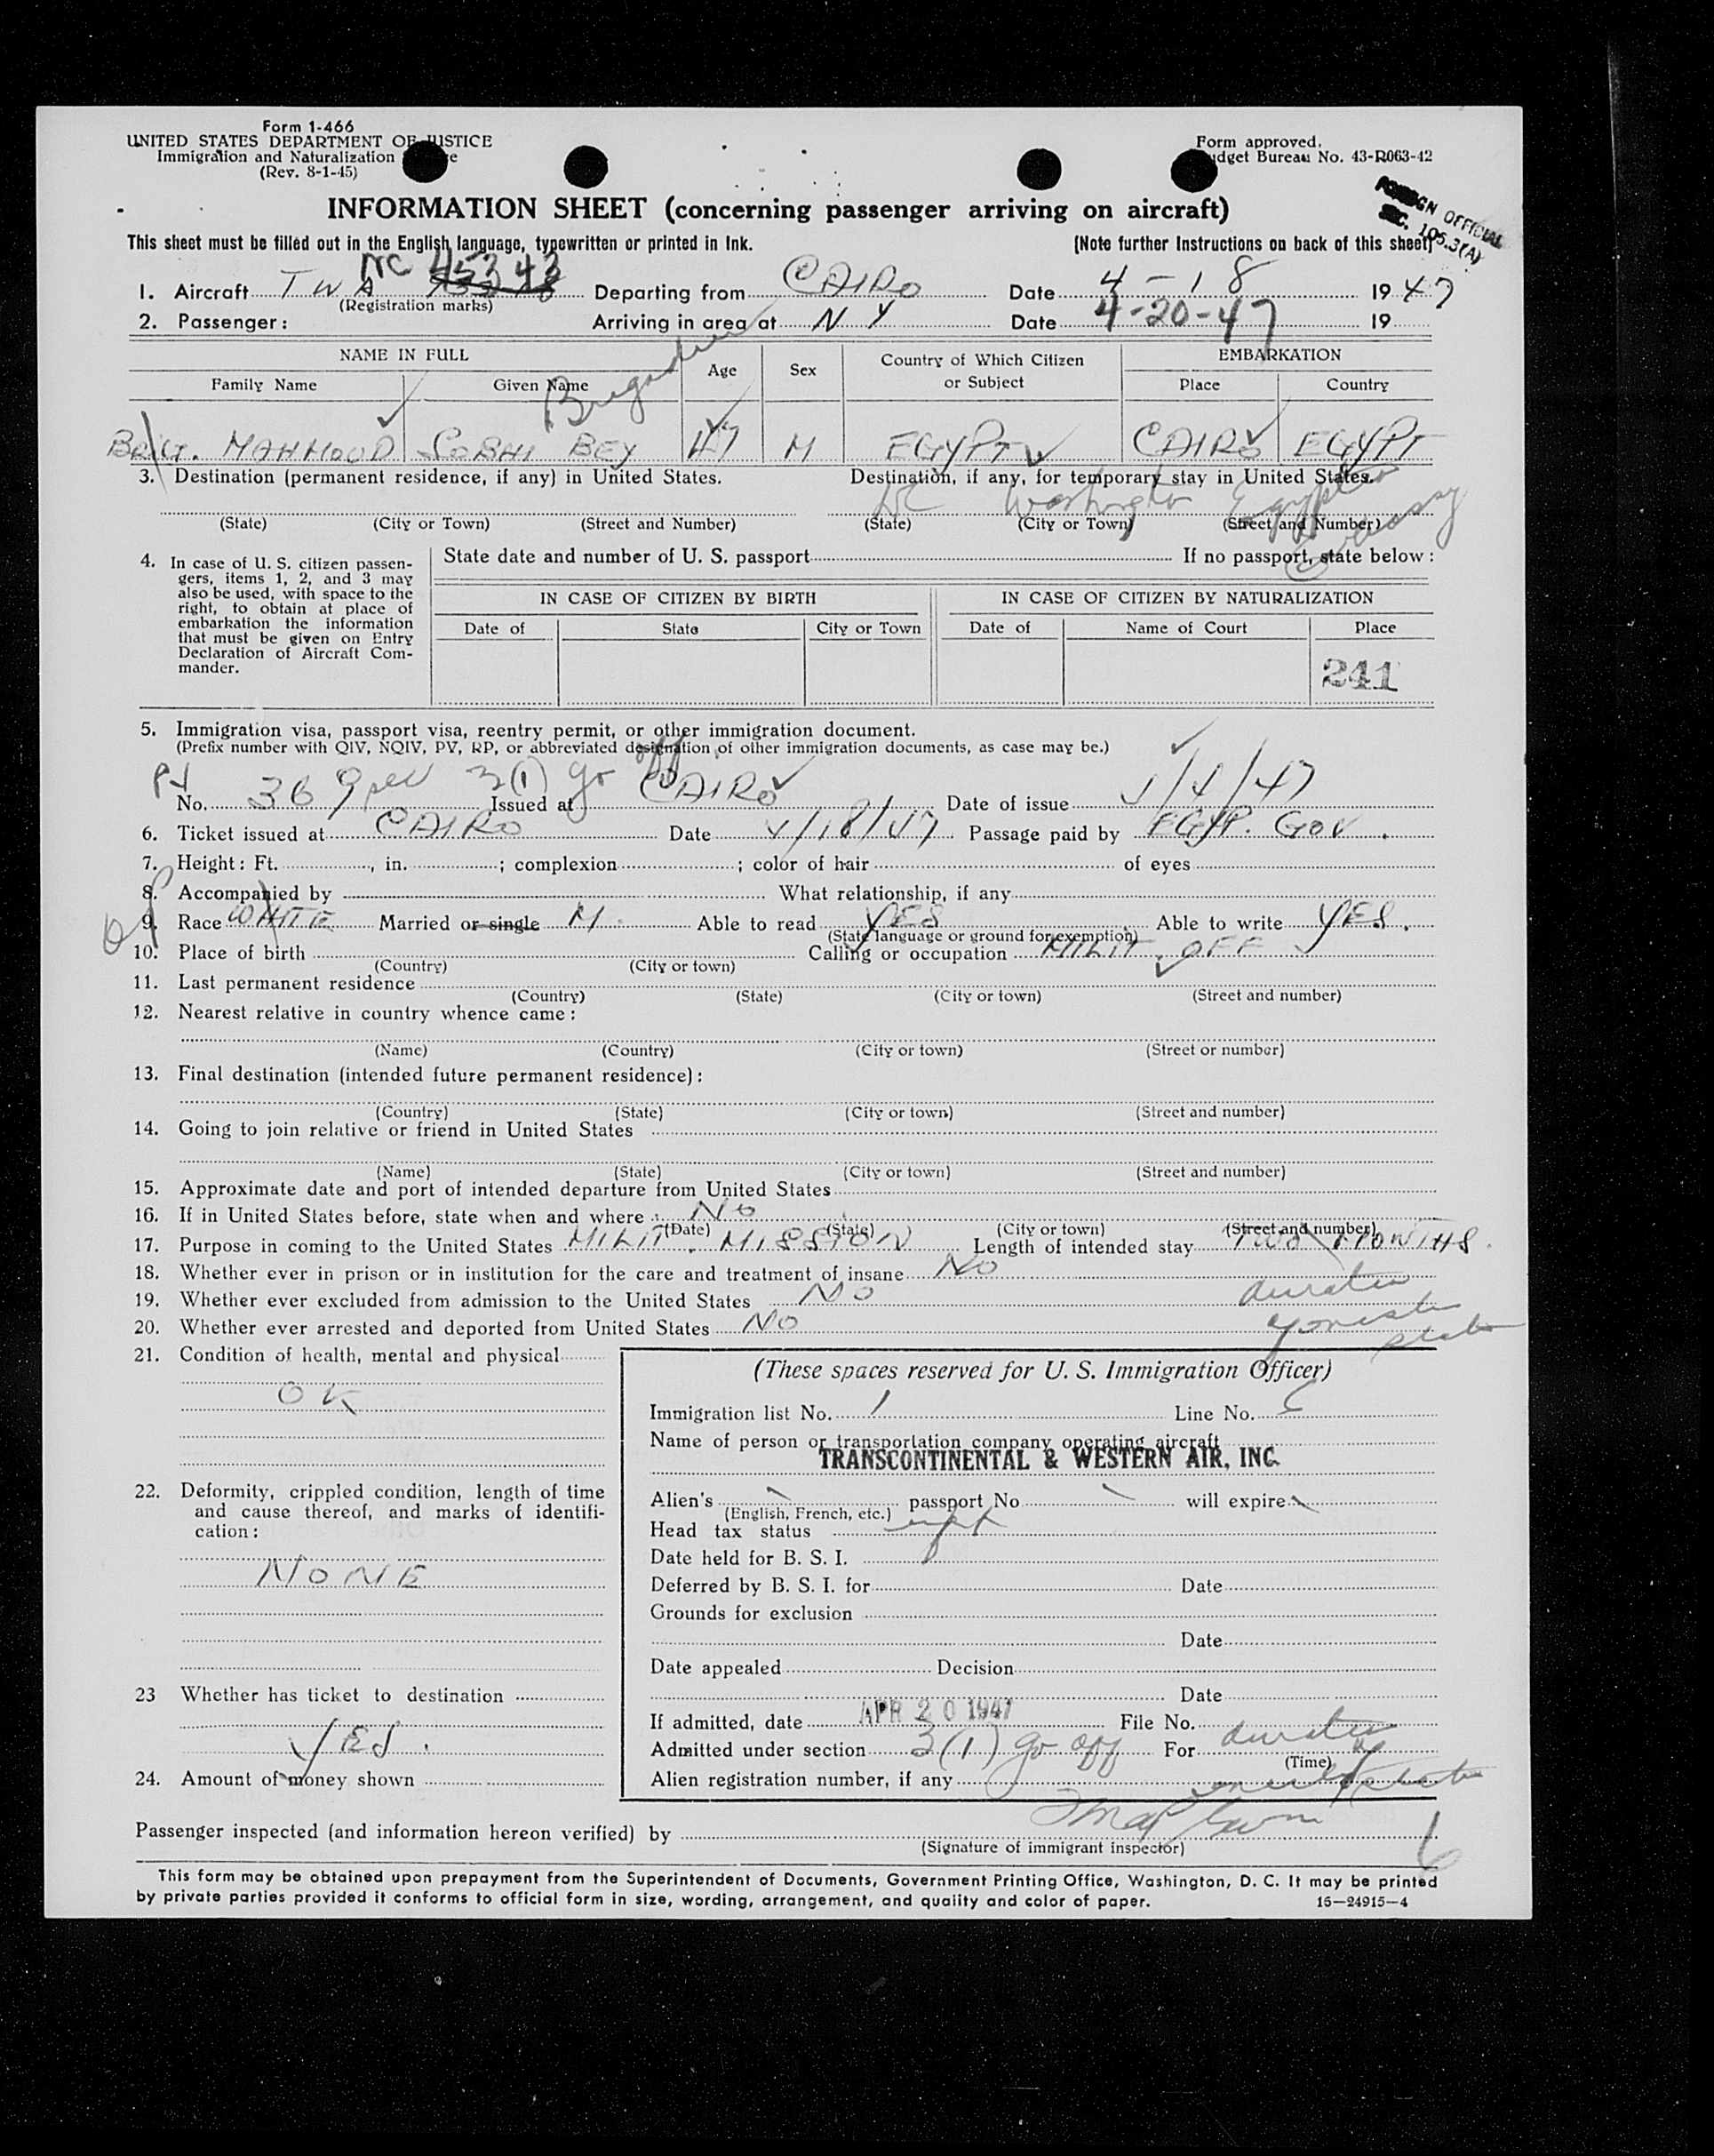 Form 1-466
UNITED STATES DEPARTMENT OF JUSTICE
Immigration and Naturalization
(Rev. 8-1-45)
Form approved.
Budget Bureau No. 43-R063-42
FOREIGN OFFICIAL
SEC. 105.3(A)
INFORMATION SHEET (concerning passenger arriving on aircraft)
This sheet must be filled out in the English language, typewritten or printed in Ink.
(Note further Instructions on back of this sheet)
NC 45343
1. Aircraft TWA Departing from CAIRO Date 4-18 1947
(Registration marks)
2. Passenger: Arriving in area at NY Date 4-20-47 19
NAME IN FULL
Age Sex Country of Which Citizen or Subject
EMBARKATION
Family Name Given Name Place Country
Brigadier
BRIG. MAHMOOD SOBHI BEY 47 M EGYPT CAIRO EGYPT
3. Destination (permanent residence, if any) in United States. Destination, if any, for temporary stay in United States.
DC Washington Egyptian Embassy
(State) (City or Town) (Street and Number) (State) (City or Town) (Street and Number)
4. In case of U. S. citizen passen-
gers, items 1, 2, and 3 may
also be used, with space to the
right, to obtain at place of
embarkation the information
that must be given on Entry
Declaration of Aircraft Com-
mander.
State date and number of U. S. passport If no passport, state below:
IN CASE OF CITIZEN BY BIRTH IN CASE OF CITIZEN BY NATURALIZATION
Date of State City or Town Date of Name of Court Place
241
5. Immigration visa, passport visa, reentry permit, or other immigration document.
(Prefix number with QIV, NQIV, PV, RP, or abbreviated designation of other immigration documents, as case may be.)
PV
No. 369 3(1) go off Issued at CAIRO Date of issue /4/47
6. Ticket issued at CAIRO Date 4/18/47 Passage paid by EGYP. GOV.
7. Height: Ft. , in. ; complexion ; color of hair of eyes
8. Accompanied by What relationship, if any
9. Race WHITE Married or single M. Able to read YES Able to write YES.
(State language or ground for exemption)
10. Place of birth Calling or occupation MILIT. OFF
(Country) (City or town)
11. Last permanent residence
(Country) (State) (City or town) (Street and number)
12. Nearest relative in country whence came:
(Name) (Country) (City or town) (Street or number)
13. Final destination (intended future permanent residence):
(Country) (State) (City or town) (Street and number)
14. Going to join relative or friend in United States
(Name) (State) (City or town) (Street and number)
15. Approximate date and port of intended departure from United States
16. If in United States before, state when and where: No
(Date) (State) (City or town) (Street and number)
17. Purpose in coming to the United States MILIT. MISSION Length of intended stay TWO MONTHS.
18. Whether ever in prison or in institution for the care and treatment of insane No
19. Whether ever excluded from admission to the United States No
20. Whether ever arrested and deported from United States NO
21. Condition of health, mental and physical
OK
22. Deformity, crippled condition, length of time
and cause thereof, and marks of identifi-
cation:
NONE
23 Whether has ticket to destination
YES.
24. Amount of money shown
(These spaces reserved for U. S. Immigration Officer)
Immigration list No. 1 Line No. 6
Name of person or transportation company operating aircraft
TRANSCONTINENTAL & WESTERN AIR, INC.
Alien's passport No. will expire
(English, French, etc.)
Head tax status
Date held for B. S. I.
Deferred by B. S. I. for Date
Grounds for exclusion
Date
Date appealed Decision
Date
If admitted, date APR 20 1947 File No.
Admitted under section 3(1) go off For
(Time)
Alien registration number, if any
Passenger inspected (and information hereon verified) by
(Signature of immigrant inspector)
6
This form may be obtained upon prepayment from the Superintendent of Documents, Government Printing Office, Washington, D. C. It may be printed
by private parties provided it conforms to official form in size, wording, arrangement, and quality and color of paper. 16—24915-4